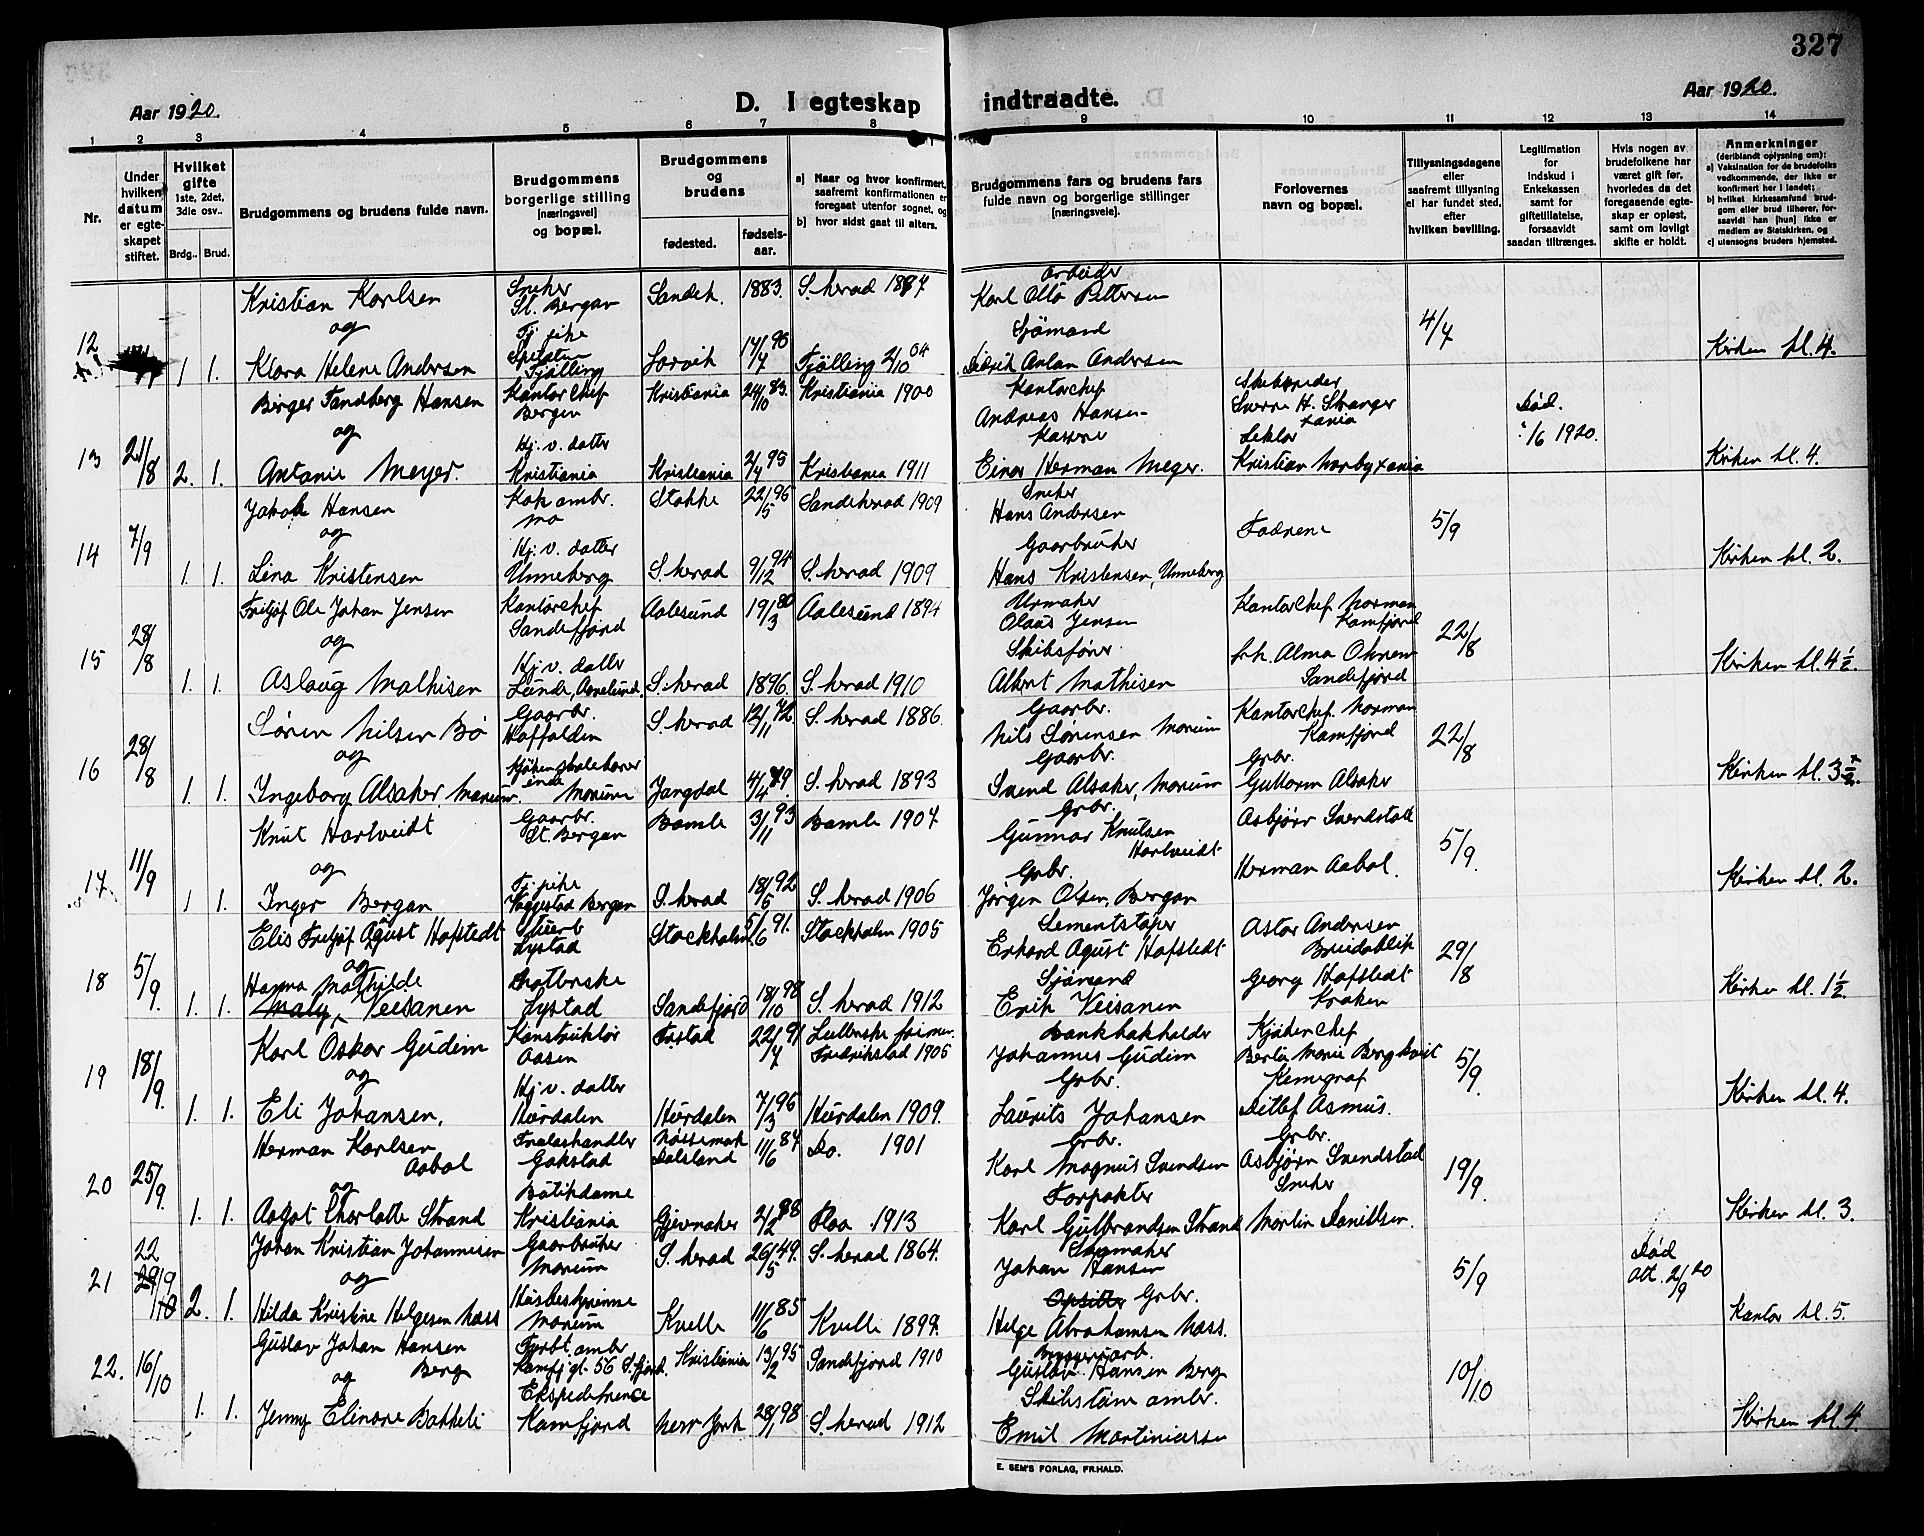 327
Aar 1920. D. I egteskap indtraadte. Aar 1920.
1 2 3 4 5 6 7 8 9 10 11 12 13 14
Nr.
Under hvilken datum er egteskapet stiftet.
Hvilket gifte 1ste, 2det, 3die osv..
Brdg.. Brud.
Brudgommens og brudens fulde navn.
Brudgommens borgerlige stilling (næringsvei) og bopæl.
Brudgommens og brudens
fødested. fødsels-aar.
a) Naar og hvor konfirmert, saafremt konfirmationen er foregaat utenfor sognet, og
b) hvor sidst gaat til alters.
Brudgommens fars og brudens fars fulde navn og borgerlige stillinger (næringsveie).
Forlovernes navn og bopæl.
Tillysningsdagene eller saafremt tillysning ei har fundet sted, efter hvilken bevilling.
Legitimation for indskud i Enkekassen samt for giftetillatelse, forsaavidt saadan tiltrænges.
Hvis nogen av brudefolkene har været gift før, hvorledes da det foregaaende egteskap er opløst, samt om lovligt skifte er holdt.
Anmerkninger (deriblandt oplysning om): a) Vaksination for de brudefolks vedkommende, der ikke er konfirmert her i landet; b) hvilket kirkesamfund brudgom eller brud tilhører, forsaavidt han [hun] ikke er medlem av Statskirken, og c) utensogns bruders hjemsted.
12 1 1. Kristian Karlsen St. Bergan Sandeh. 1883. S. herad 1897 arbeider Karl Otto Pettersen 4/7
og Klara Helene Andersen Tj. pike Tjølling Larvik 14/7 90 Tjølling 2/10 04 Sjömand Anton Andersen Kirken kl. 4.
13 21/8 2. 1. Birger Tandberg Hansen Kontorchef Bergen Kristiania 24/10 83. Kristiania 1900 Kontorchef Andreas Hansen Sverre H. Stranger Død. 1/6 1920.
og Antonie Meyer. Hj. v. datter Kristiania Kristiania 2/4 95 Kristiania 1911 Einar Herman Meyer. Lektor Kristian Norby Kirken kl. 4.
14 7/9 1. 1. Jakob Hansen Mo Stokke 22/5 96 Sandeherad 1909 Hans Andersen Fædrene 5/9
og Lina Kristensen Hj. v. datter Unneberg S. herad 9/12 94 S. herad 1909 Gaarbruker Hans Kristensen, Unneberg Kirken kl. 2.
15 28/8 1. 1. Fritjof Ole Johan Jensen Kontorchef Sandefjord Aalesund 19/3 80 Aalesund 1894 Urmaker Olaus Jensen Kontorchef Norman Kamfjord 22/8
og Aslaug Mathisen Hj. v. datter Lunde, S. herad 1896. S. herad 1910 Skibsfører. Albert Mathisen frk. Alma Sandefjord Kirken kl. 4 1/2.
16 28/8 1. 1. Søren Nilsen Bø Gaarbr. S. herad 12/11 72. S. herad 1886. Gaarbr. Nils Sørensen Marum Kontorchef Norman Kamfjord 22/8
og Ingeborg Alsaker, Marum. Marum Jangdal 4/4 79. S. herad 1893 Gaarbr. Svend Alsaker, Marum Grbr. Guttorm Alsaker Kirken kl. 3 1/2.
17 11/9 1 1. Knut Hartveidt Gaarbr. St. Bergan Bamle 3/11 93 Bamle 1907 Grbr. Gunnar Knutsen Hartveidt Asbjørn Svendstad 5/9.
og Inger Bergan Tj. pike Bergan S. herad 18/5 92 S. herad 1906 Grbr. Jørgen Olsen, Bergan Herman Aabol. Kirken kl. 2.
18 5/9. 1. 1. Elis Fritjof Agust Hofstedt Stuert Lystad Stockholm 5/6 91. Stockholm 1905 Sementstøper Erhard Agust Hofstedt Astor Andersen Breidablik 29/8
og Hanna Mathilde Veisanen Lystad Sandefjord 18/10 98 S. herad 1912 Sjömand Erik Veisanen Georg Hofstedt Kraken Kirken kl. 1 1/2.
19 18/9. 1. 1. Karl Oskar Gudim Konstruktør Aasen 22/4 91 Fredrikstad 1905 Bankbokholder Johannes Gudim Kjøkenchef 5/9.
og Eli Johansen, Hj. v. datter Hurdalen Hurdalen 7/3 96 Hurdalen 1909. Grbr. Laurits Johansen Kemigraf Ditlef Asmus. Kirken kl. 4.
20 25/9. 1. 1. Herman Karlsen Aabol Gokstad Dalsland 11/6 84 Do. 1901 Grbr. Karl Magnus Svendsen Grbr. Asbjørn Svendstad 19/9.
og Aagot Charlotte Strand Butikdame Kristiania Gjevnaker 2/2 98 Flaa 1913 Forpakter Karl Gulbrandsen Strand Snekker Martin Danielsen. Kirken kl. 3.
21 22 29/9 2. 1. Johan Kristian Johannesen Gaarbruker Marum S. herad 26/5 49. S. herad 1864. Johan Hansen 5/9 Død Att. 2/9 20
og Hilda Kristine Helgesen Nass Husbestyrinne Marum Kvelle 11/6 85 Kvelle 1899. Opsitter Grbr. Helge Abrahamsen Nass. Kontor kl. 5.
22. 16/10 1. 1. Gustav Johan Hansen Berg Kamfj gt. 56 S. fjord. Kristiania 13/2 95 Sandefjord 1910 Gustav Hansen Berg 10/10
og Jenny Elinore Bakkeli Kamfjord New York 28/1 98 S. herad 1912 Emil Martiniussen Kirken kl. 4
E. SEM'S FORLAG, FR.HALD.